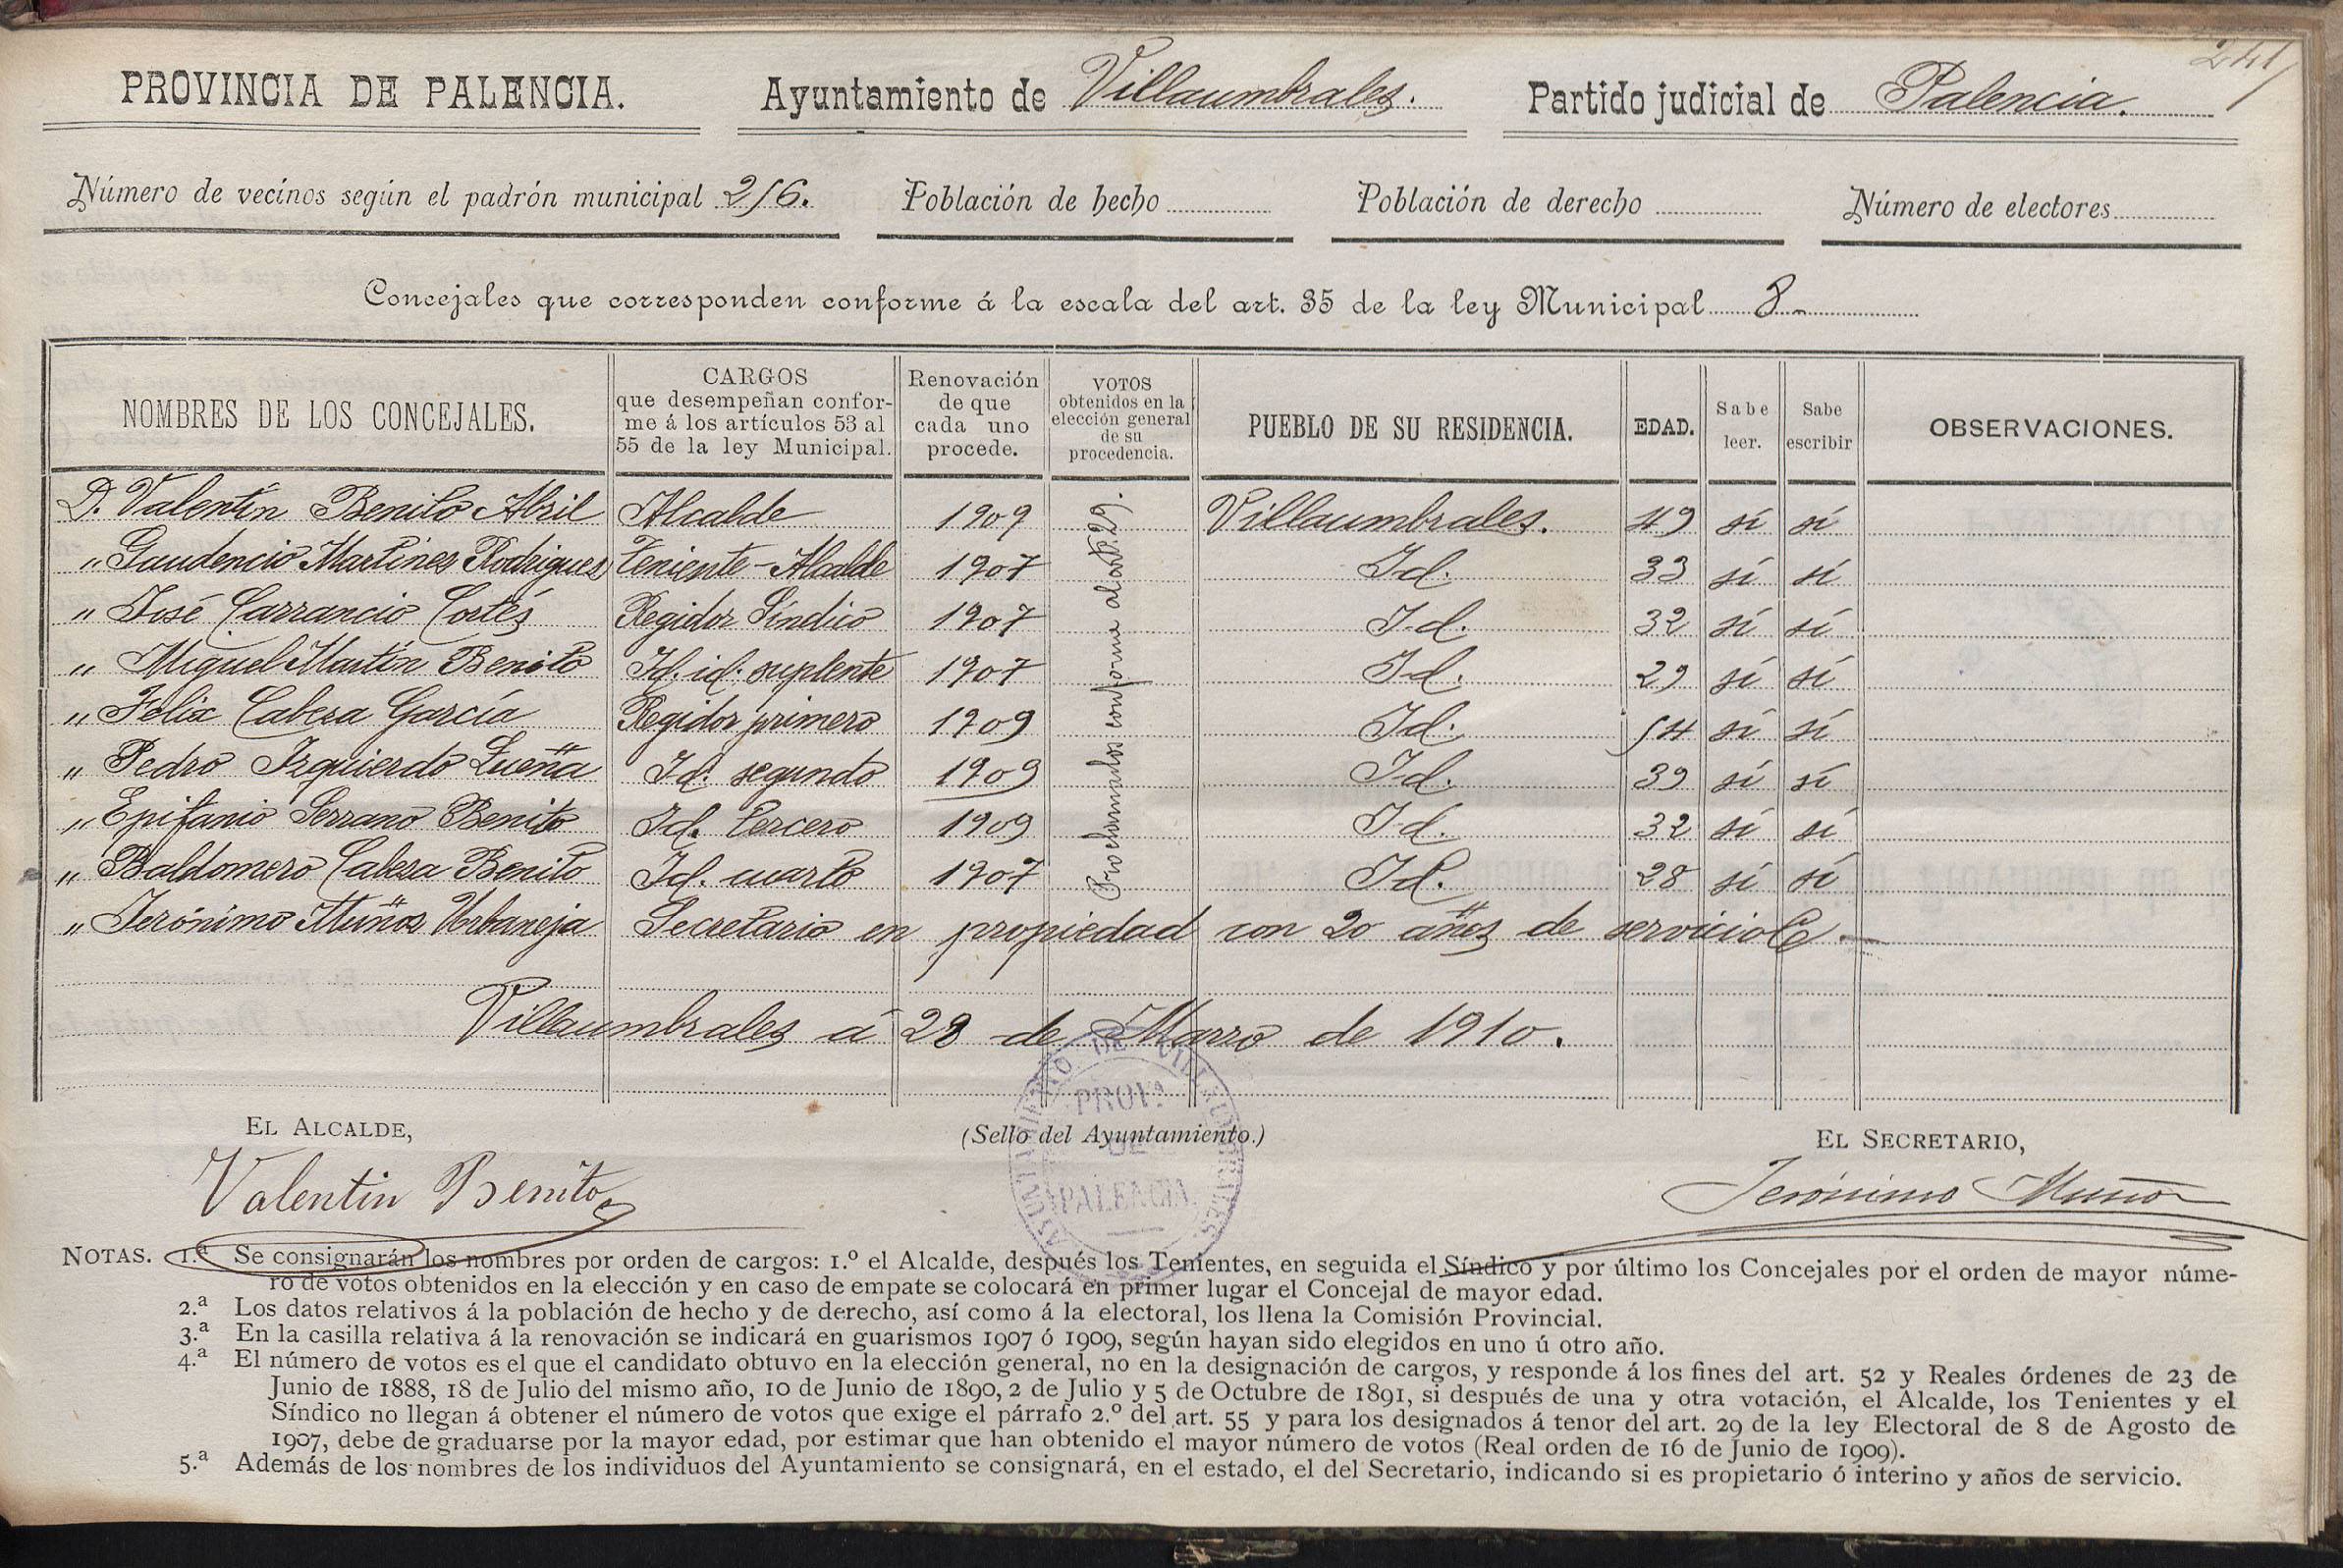 241
PROVINCIA DE PALENCIA. Ayuntamiento de Villaumbrales. Partido judicial de Palencia.
Número de vecinos según el padrón municipal 256. Población de hecho Población de derecho Número de electores
Concejales que corresponden conforme á la escala del art. 35 de la ley Municipal 8.
NOMBRES DE LOS CONCEJALES. CARGOS que desempeñan conforme á los artículos 53 al 55 de la ley Municipal. Renovación de que cada uno procede. VOTOS obtenidos en la elección general de su procedencia. PUEBLO DE SU RESIDENCIA. EDAD. Sabe leer. Sabe escribir OBSERVACIONES.
D. Valentín Benito Abril Alcalde 1909 Villaumbrales. 49 sí sí
" Gaudencio Martínes Rodrígues Teniente-Alcalde 1907 Id. 33 sí sí
" José Carrancio Cortés Regidor Síndico 1907 Id. 32 sí sí
" Miguel Martín Benito Id. id. suplente 1907 Id. 29 sí sí
" Felix Cabesa García Regidor primero 1909 Id. 54 sí sí
" Pedro Izquierdo Lueña Id. segundo 1909 Id. 39 sí sí
" Epifanio Serrano Benito Id. tercero 1909 Id. 32 sí sí
" Baldomero Cabesa Benito Id. cuarto 1907 Id. 28 sí sí
Proclamados conforme al art. 29.
" Jerónimo Muños Urbaneja Secretario en propiedad con 20 años de servicio
Villaumbrales á 28 de Marzo de 1910.
AYUNTAMIENTO DE VILLAUMBRALES
PROV.ª
DE
PALENCIA
EL ALCALDE, (Sello del Ayuntamiento.) EL SECRETARIO,
Valentin Benito Jerónimo Muño
NOTAS. 1.ª Se consignarán los nombres por orden de cargos: 1.º el Alcalde, después los Tenientes, en seguida el Síndico y por último los Concejales por el orden de mayor núme-
ro de votos obtenidos en la elección y en caso de empate se colocará en primer lugar el Concejal de mayor edad.
2.ª Los datos relativos á la población de hecho y de derecho, así como á la electoral, los llena la Comisión Provincial.
3.ª En la casilla relativa á la renovación se indicará en guarismos 1907 ó 1909, según hayan sido elegidos en uno ú otro año.
4.ª El número de votos es el que el candidato obtuvo en la elección general, no en la designación de cargos, y responde á los fines del art. 52 y Reales órdenes de 23 de
Junio de 1888, 18 de Julio del mismo año, 10 de Junio de 1890, 2 de Julio y 5 de Octubre de 1891, si después de una y otra votación, el Alcalde, los Tenientes y el
Síndico no llegan á obtener el número de votos que exige el párrafo 2.º del art. 55 y para los designados á tenor del art. 29 de la ley Electoral de 8 de Agosto de
1907, debe de graduarse por la mayor edad, por estimar que han obtenido el mayor número de votos (Real orden de 16 de Junio de 1909).
5.ª Además de los nombres de los individuos del Ayuntamiento se consignará, en el estado, el del Secretario, indicando si es propietario ó interino y años de servicio.